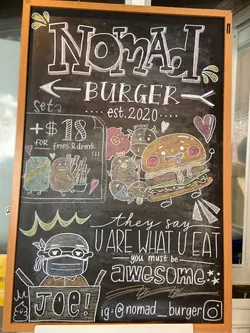 NOMAD
BURGER
est. 2020
Set
+$18
FOR fries & drink
they say
U ARE WHAT U EAT
you must be
awesome
JOE!
ig: @nomad_burger